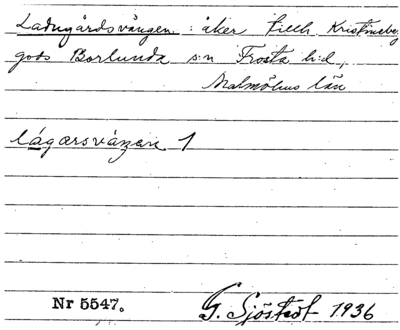 Ladugårdsvången : åker tillh. Kristineberg
gods Borlunda s:n Frosta h:d,
Malmöhus län
lágarsváŋan 1
Nr 5547.
G. Sjöstedt 1936